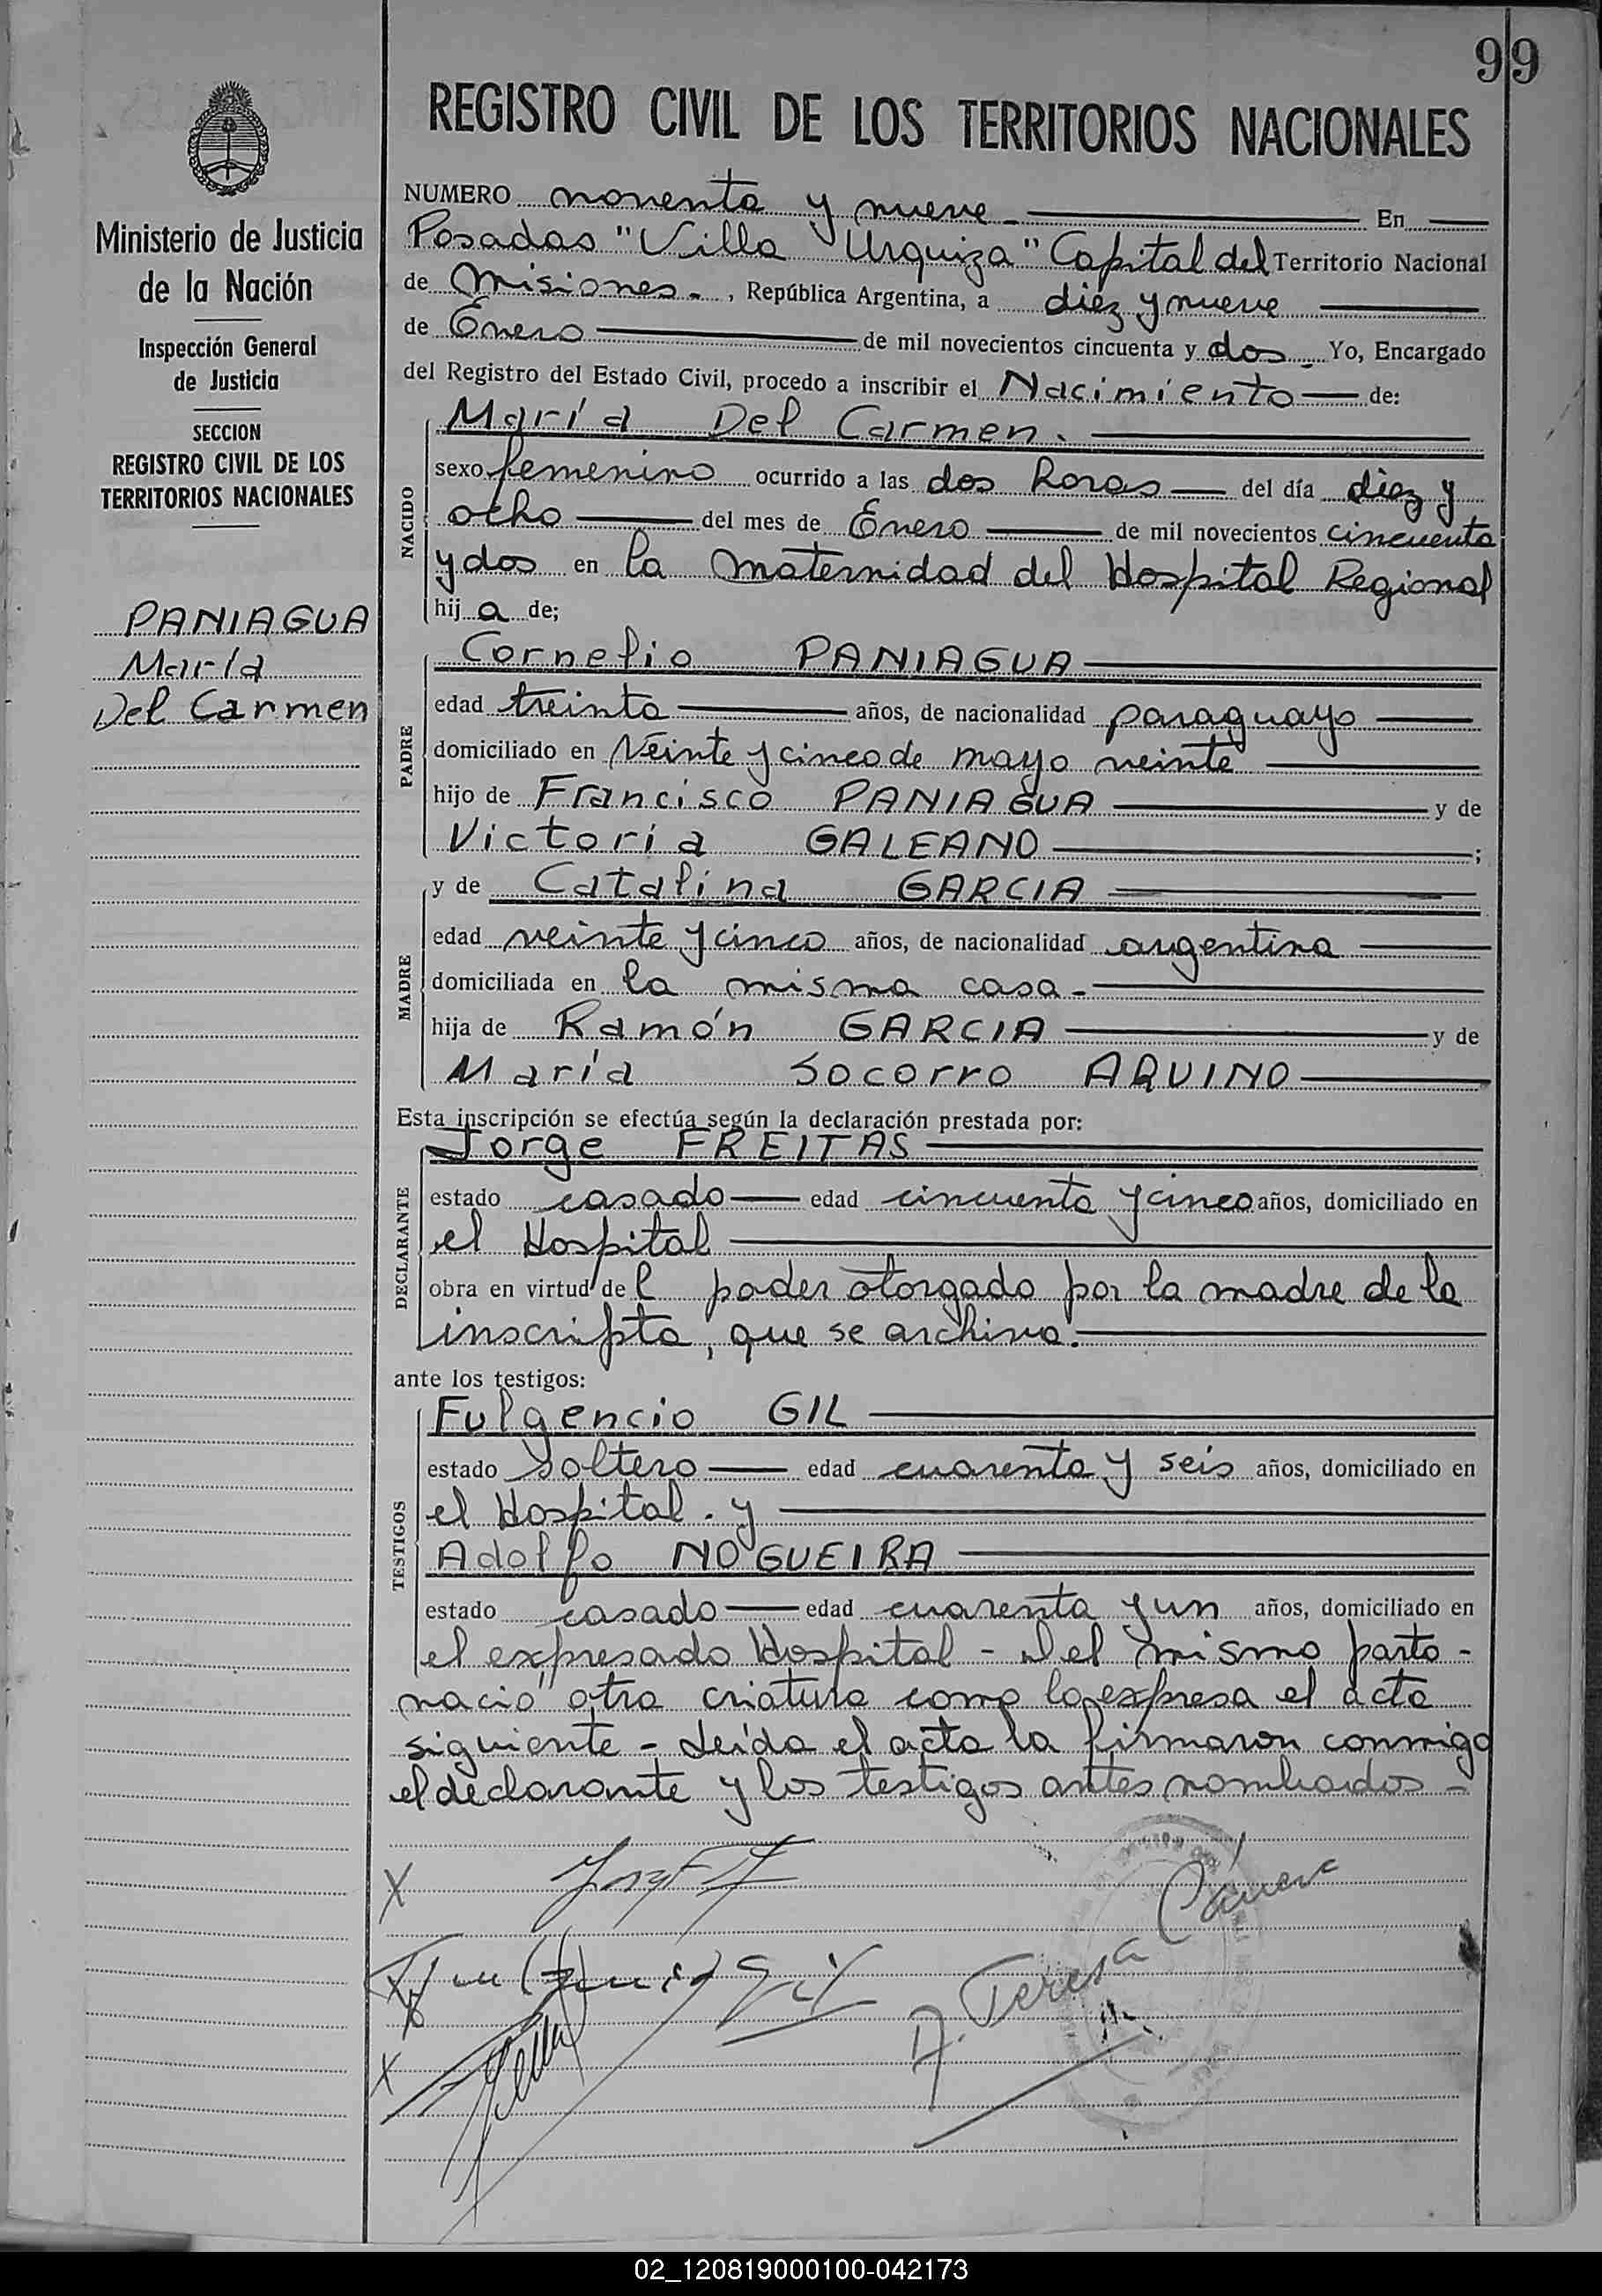 99
REGISTRO CIVIL DE LOS TERRITORIOS NACIONALES
Ministerio de Justicia
de la Nación
Inspección General
de Justicia
SECCION
REGISTRO CIVIL DE LOS
TERRITORIOS NACIONALES
PANIAGUA
María
Del Carmen
NUMERO noventa y nueve. En
Posadas "Villa Urquiza" Capital del Territorio Nacional
de Misiones., República Argentina, a diez y nueve
de Enero de mil novecientos cincuenta y dos. Yo, Encargado
del Registro del Estado Civil, procedo a inscribir el Nacimiento de:
NACIDO
María Del Carmen.
sexo femenino ocurrido a las dos horas del día diez y
ocho del mes de Enero de mil novecientos cincuenta
y dos en la maternidad del Hospital Regional
hij a de;
PADRE
Cornelio PANIAGUA
edad treinta años, de nacionalidad paraguayo
domiciliado en Veinte y cinco de mayo veinte
hijo de Francisco PANIAGUA y de
Victoria GALEANO ;
MADRE
y de Catalina GARCIA
edad veinte y cinco años, de nacionalidad argentina
domiciliada en la misma casa.
hija de Ramón GARCIA y de
María Socorro AQUINO
Esta inscripción se efectúa según la declaración prestada por:
DECLARANTE
Jorge FREITAS
estado casado edad cincuenta y cinco años, domiciliado en
el Hospital
obra en virtud del poder otorgado por la madre de la
inscripta, que se archiva.
ante los testigos:
TESTIGOS
Fulgencio GIL
estado soltero edad cuarenta y seis años, domiciliado en
el Hospital. y
Adolfo NOGUEIRA
estado casado edad cuarenta y un años, domiciliado en
el expresado Hospital - del mismo parto -
nació otra criatura como lo expresa el acta
siguiente - Leída el acta la firmaron conmigo
el declarante y los testigos antes nombrados -
X
Gil
A. Teresa
X
02_120819000100-042173